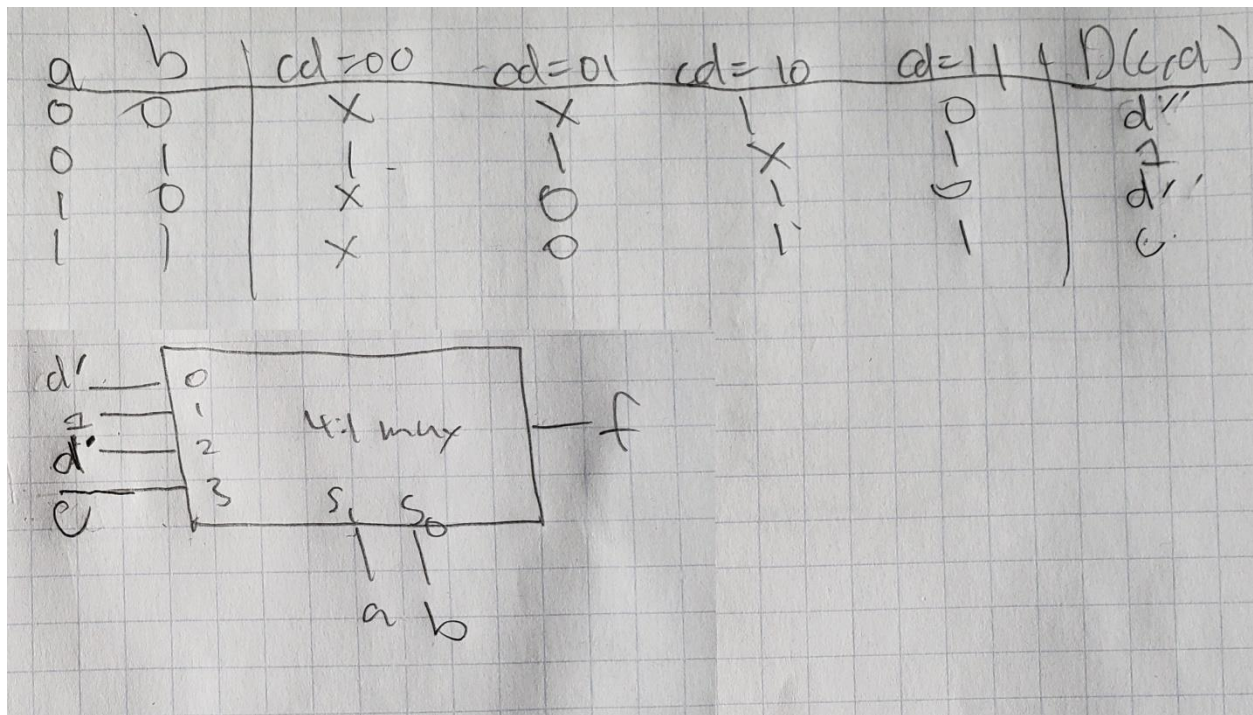 a b cd=00 cd=01 cd=10 cd=11 D(c,d)
0 0 X X 1 0 d''
0 1 1 1 X 1 1
1 0 X 0 1 0 d''
1 1 X 0 1 1 c
d' 0
1 1 4:1 mux f
d' 2
c 3 S1 S0
a b